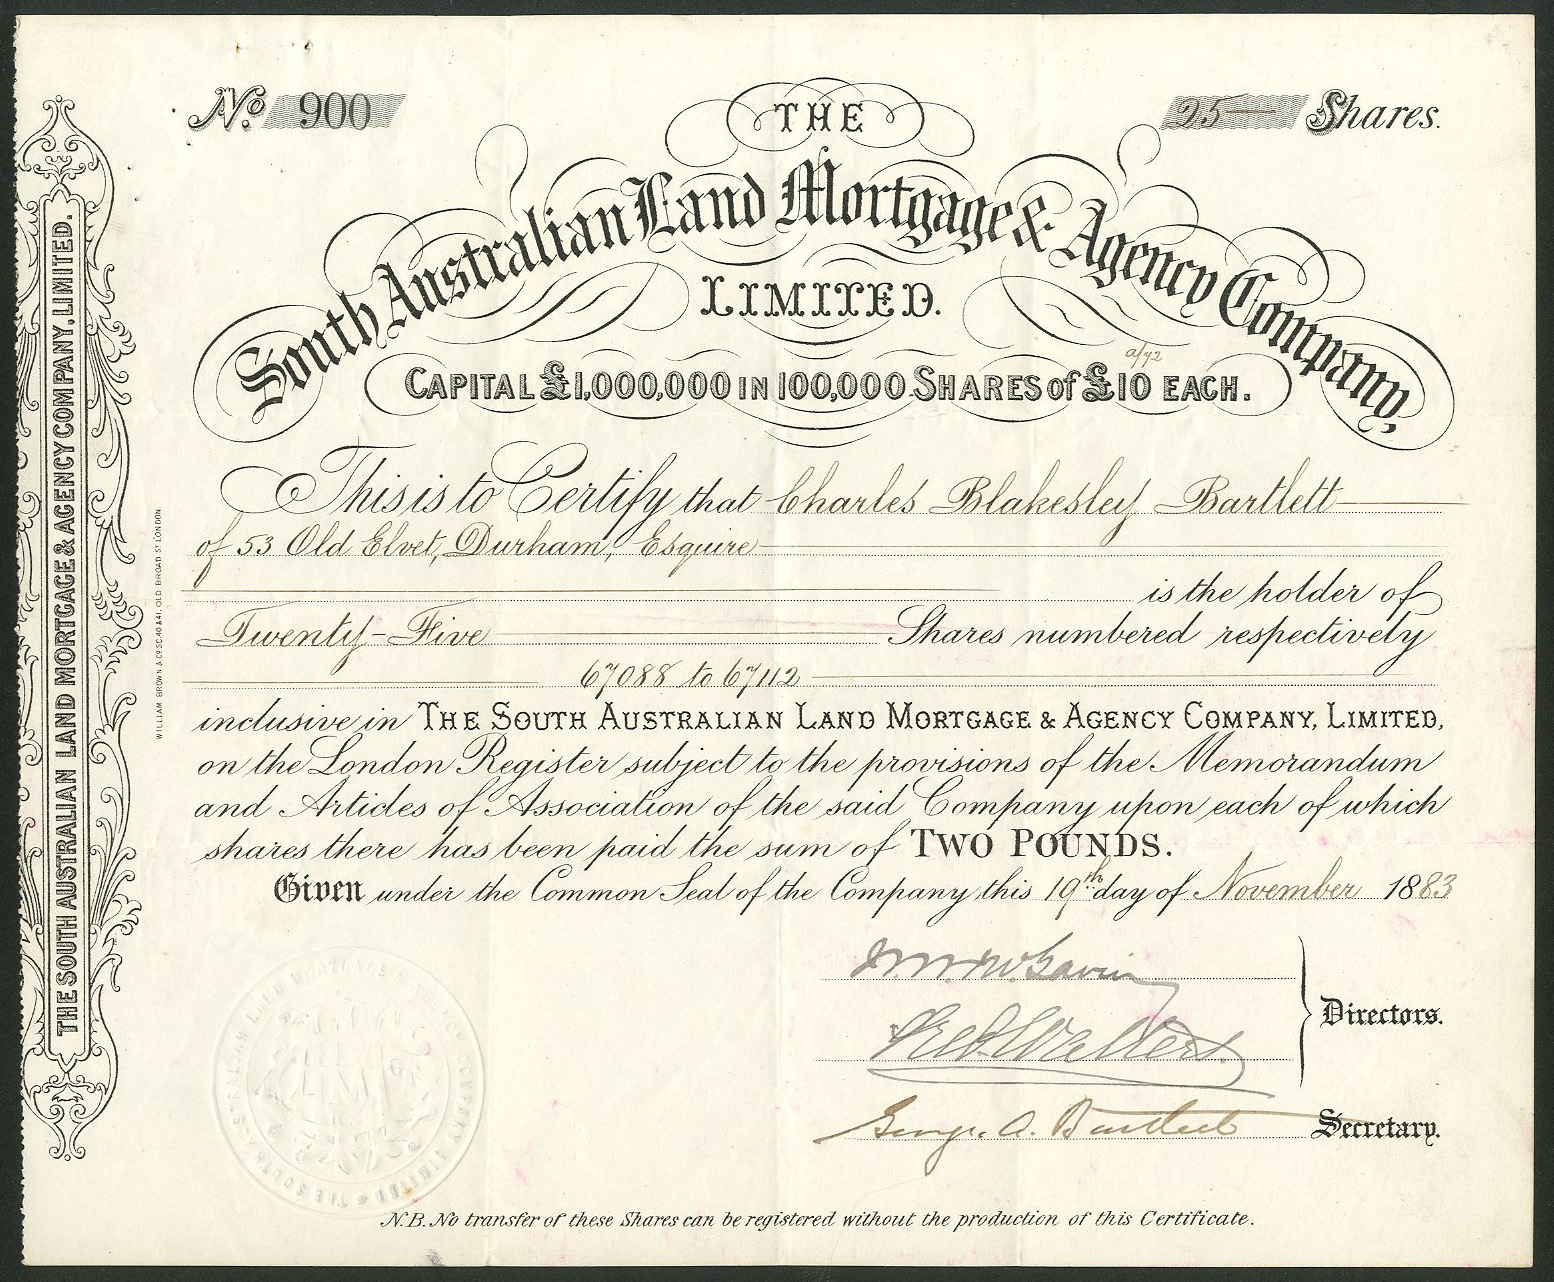 No. 900
25 Shares.
THE
South Australian Land Mortgage & Agency Company,
LIMITED.
a/72
CAPITAL £1,000,000 IN 100,000 SHARES of £10 EACH.
This is to Certify that Charles Blakesley Bartlett
of 53 Old Elvet, Durham, Esquire
is the holder of
Twenty-Five Shares numbered respectively
67088 to 67112
inclusive in THE SOUTH AUSTRALIAN LAND MORTGAGE & AGENCY COMPANY, LIMITED,
on the London Register subject to the provisions of the Memorandum
and Articles of Association of the said Company upon each of which
shares there has been paid the sum of TWO POUNDS.
Given under the Common Seal of the Company this 19th day of November 1883
Directors.
George A. Bartlett Secretary.
N.B. No transfer of these Shares can be registered without the production of this Certificate.
THE SOUTH AUSTRALIAN LAND MORTGAGE & AGENCY COMPANY, LIMITED.
WILLIAM BROWN & Co SC. 40 & 41, OLD BROAD ST LONDON